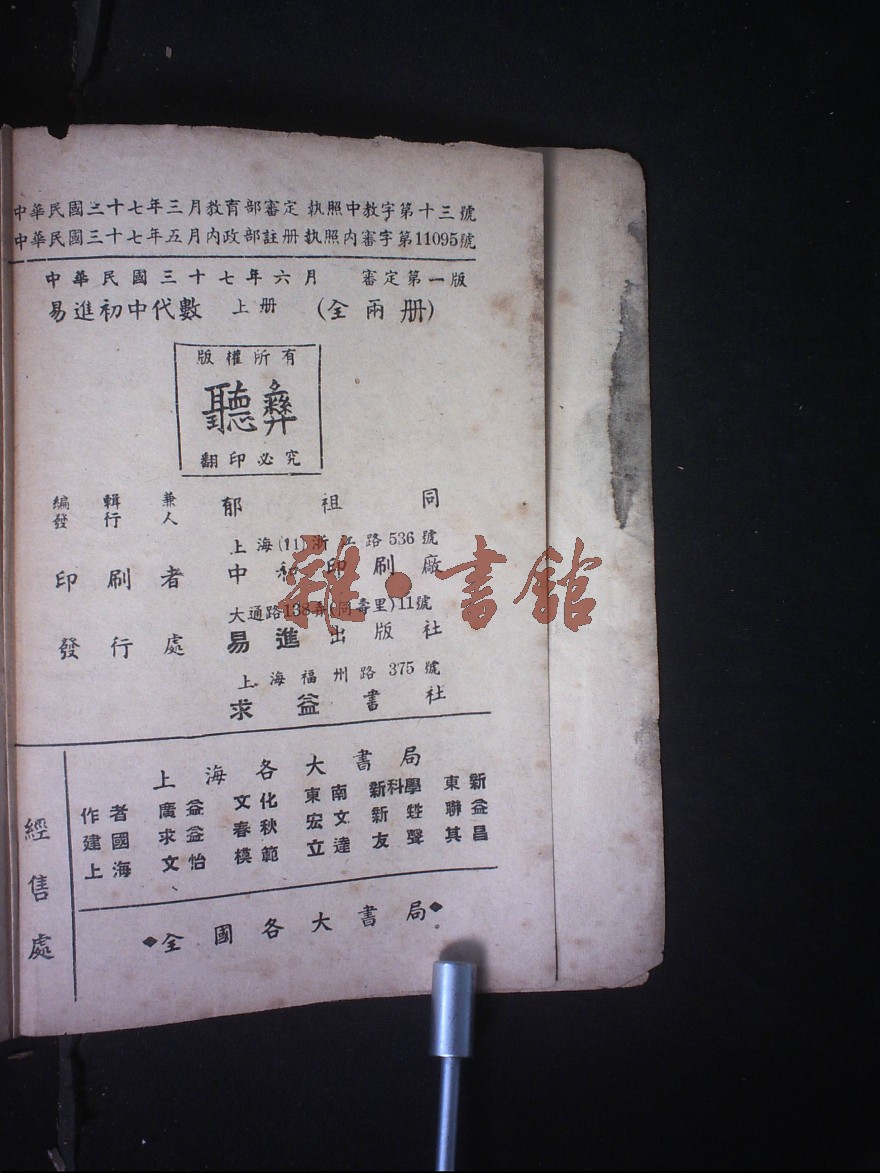 中華民國三十七年三月教育部審定 執照中教字第十三號
中華民國三十七年五月內政部註册執照內審字第11095號
中華民國三十七年六月 審定第一版
易進初中代數 上册 (全兩册)
版權所有
聽彝
翻印必究
編輯兼發行人 郁祖同
上海(11)浙江路536號
印刷者 中和印刷廠
大通路138弄(同壽里)11號
發行處 易進出版社
上海福州路375號
求益書社
雜·書館
經售處
上海各大書局
作者 廣益 文化 東南 新科學 東新
建國 求益 春秋 宏文 新甡 聯益
上海 文怡 模範 立達 友聲 其昌
◆全國各大書局◆